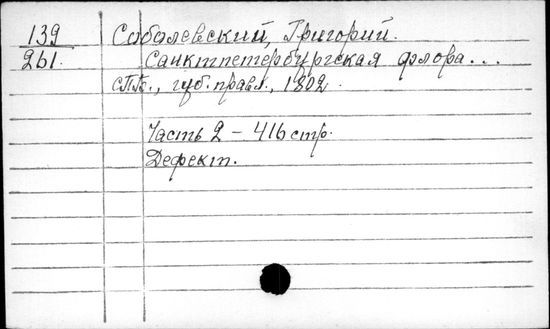 139 Соболевский, Григорий.
261. Санктпетербургская флора...
СПБ., губ. правл., 1802.
Часть 2 – 416 стр.
Дефект.